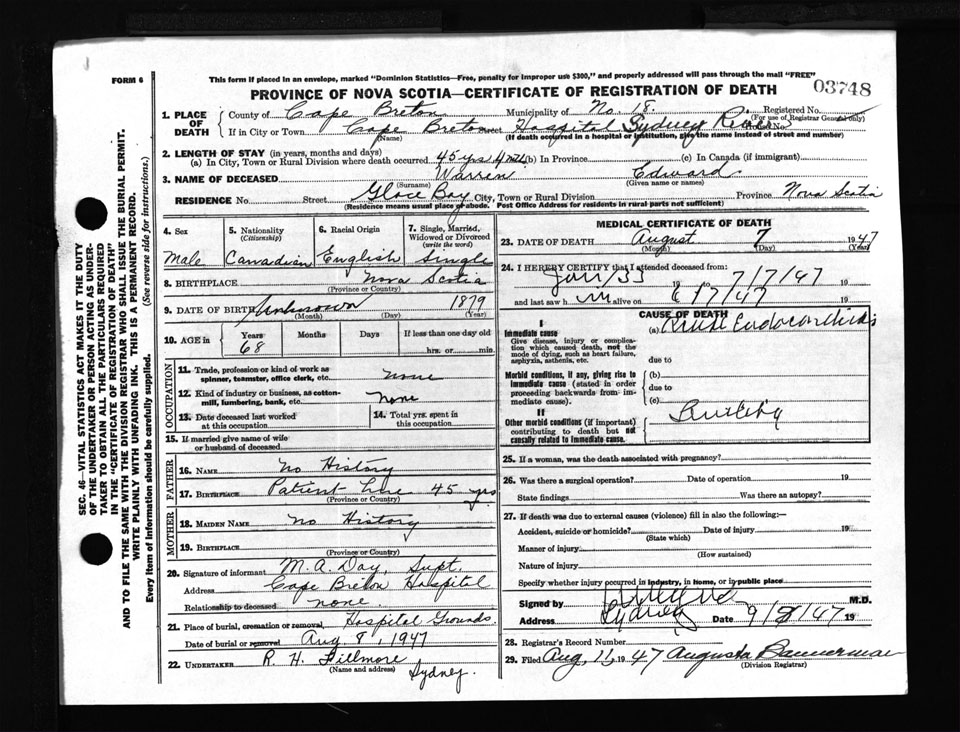 This form if placed in an envelope, marked "Dominion Statistics—Free, penalty for improper use $300," and properly addressed will pass through the mail "FREE"
FORM 6
PROVINCE OF NOVA SCOTIA—CERTIFICATE OF REGISTRATION OF DEATH
03748
1. PLACE OF DEATH
County of Cape Breton Municipality of No. 18. Registered No.
(For use of Registrar General only)
If in City or Town Cape Breton Street Hospital Sydney River House No.
(Name) (If death occurred in a hospital or institution, give the name instead of street and number)
2. LENGTH OF STAY (in years, months and days)
(a) In City, Town or Rural Division where death occurred 45 yrs 4 mths (b) In Province (c) In Canada (if immigrant)
3. NAME OF DECEASED Warren Edward
(Surname) (Given name or names)
RESIDENCE No. Street Glace Bay City, Town or Rural Division Province Nova Scotia
(Residence means usual place of abode. Post Office Address for residents in rural parts not sufficient)
4. Sex
Male
5. Nationality
(Citizenship)
Canadian
6. Racial Origin
English
7. Single, Married, Widowed or Divorced
(write the word)
Single
8. BIRTHPLACE Nova Scotia
(Province or Country)
9. DATE OF BIRTH Unknown 1879
(Month) (Day) (Year)
10. AGE in
Years Months Days If less than one day old
68 hrs. or min.
OCCUPATION
11. Trade, profession or kind of work as spinner, teamster, office clerk, etc. none
12. Kind of industry or business, as cotton-mill, lumbering, bank, etc. none
13. Date deceased last worked at this occupation
14. Total yrs. spent in this occupation
15. If married give name of wife or husband of deceased
FATHER
16. NAME no History
17. BIRTHPLACE Patient here 45 yrs
(Province or Country)
MOTHER
18. MAIDEN NAME no History
19. BIRTHPLACE
(Province or Country)
20. Signature of informant M. A. Day, Supt.
Address Cape Breton Hospital
Relationship to deceased none.
21. Place of burial, cremation or removal Hospital Grounds.
Date of burial or removal Aug 8, 1947
22. UNDERTAKER R. H. Fillmore
(Name and address) Sydney.
MEDICAL CERTIFICATE OF DEATH
23. DATE OF DEATH August 7 1947
(Month) (Day) (Year)
24. I HEREBY CERTIFY that I attended deceased from:
Jan/33 19 to 7/7/47 19
and last saw h im alive on 6/7/47 19
CAUSE OF DEATH
I
Immediate cause
Give disease, injury or complication which caused death, not the mode of dying, such as heart failure, asphyxia, asthenia, etc.
(a) Endocarditis
due to
Morbid conditions, if any, giving rise to immediate cause (stated in order proceeding backwards from immediate cause).
(b)
due to
(c)
II
Other morbid conditions (if important) contributing to death but not causally related to immediate cause.
25. If a woman, was the death associated with pregnancy?
26. Was there a surgical operation? Date of operation 19
State findings Was there an autopsy?
27. If death was due to external causes (violence) fill in also the following:—
Accident, suicide or homicide? Date of injury 19
(State which)
Manner of injury
(How sustained)
Nature of injury
Specify whether injury occurred in industry, in home, or in public place
Signed by M.D.
Address Sydney Date 9/8/47 19
28. Registrar's Record Number
29. Filed Aug, 11, 1947 Augusta Bannerman
(Division Registrar)
SEC. 46—VITAL STATISTICS ACT MAKES IT THE DUTY
OF THE UNDERTAKER OR PERSON ACTING AS UNDER-
TAKER TO OBTAIN ALL THE PARTICULARS REQUIRED
IN THE "CERTIFICATE OF REGISTRATION OF DEATH"
AND TO FILE THE SAME WITH THE DIVISION REGISTRAR WHO SHALL ISSUE THE BURIAL PERMIT.
WRITE PLAINLY WITH UNFADING INK. THIS IS A PERMANENT RECORD.
Every item of Information should be carefully supplied. (See reverse side for instructions.)